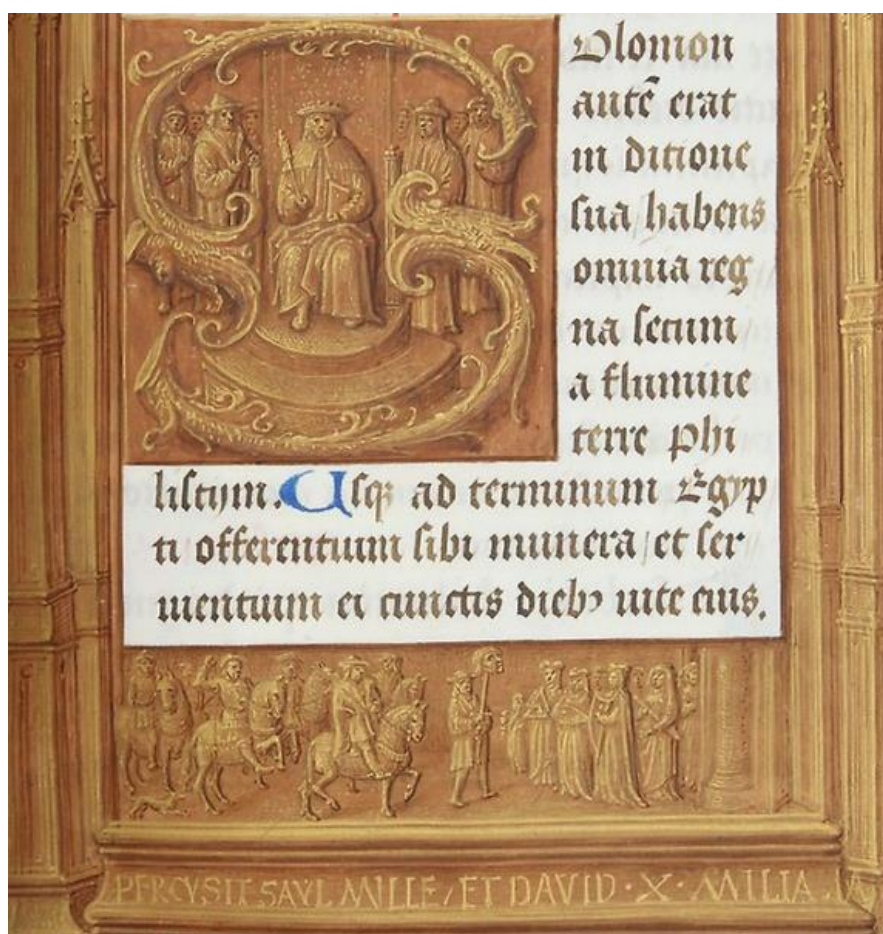 Solomon
autē erat
in ditione
sua habens
omnia reg
na secum
a flumine
terre phi
listijm. Usqꝫ ad terminum Egyp
ti offerentium sibi munera / et ser
uientium ei cunctis diebꝰ uite eius.
PERCVSIT SAVL MILLE / ET DAVID · X · MILIA